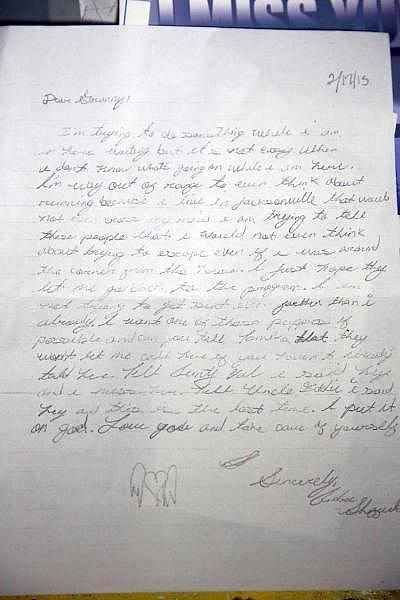 I MISS YOU
2/17/15
Dear Granny!
I'm trying to do something while i am
in here waiting but it's not easy when
i don't know what's going on while i am here.
I'm way out of range to even think about
running because i live in Jacksonville that would
not even cross my mind i am trying to tell
these people that i would not even think
about trying to escape even if i was around
the corner from the house. I just hope they
let me go back to the program. I am
not trying to get sent even further than i
already. I want one of those peppers if
possible and can you tell Tamika that they
won't let me call her if you haven't already
told her. Tell Aunty I said hey
and i miss her. Tell Uncle Eddie i said
hey and this is the last time. I put it
on god. Love you and take care of yourself
Sincerely,